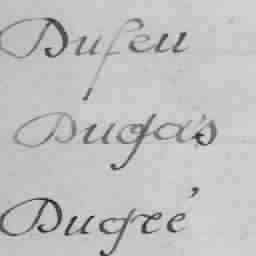 Dufeu
Dugas
Dugré